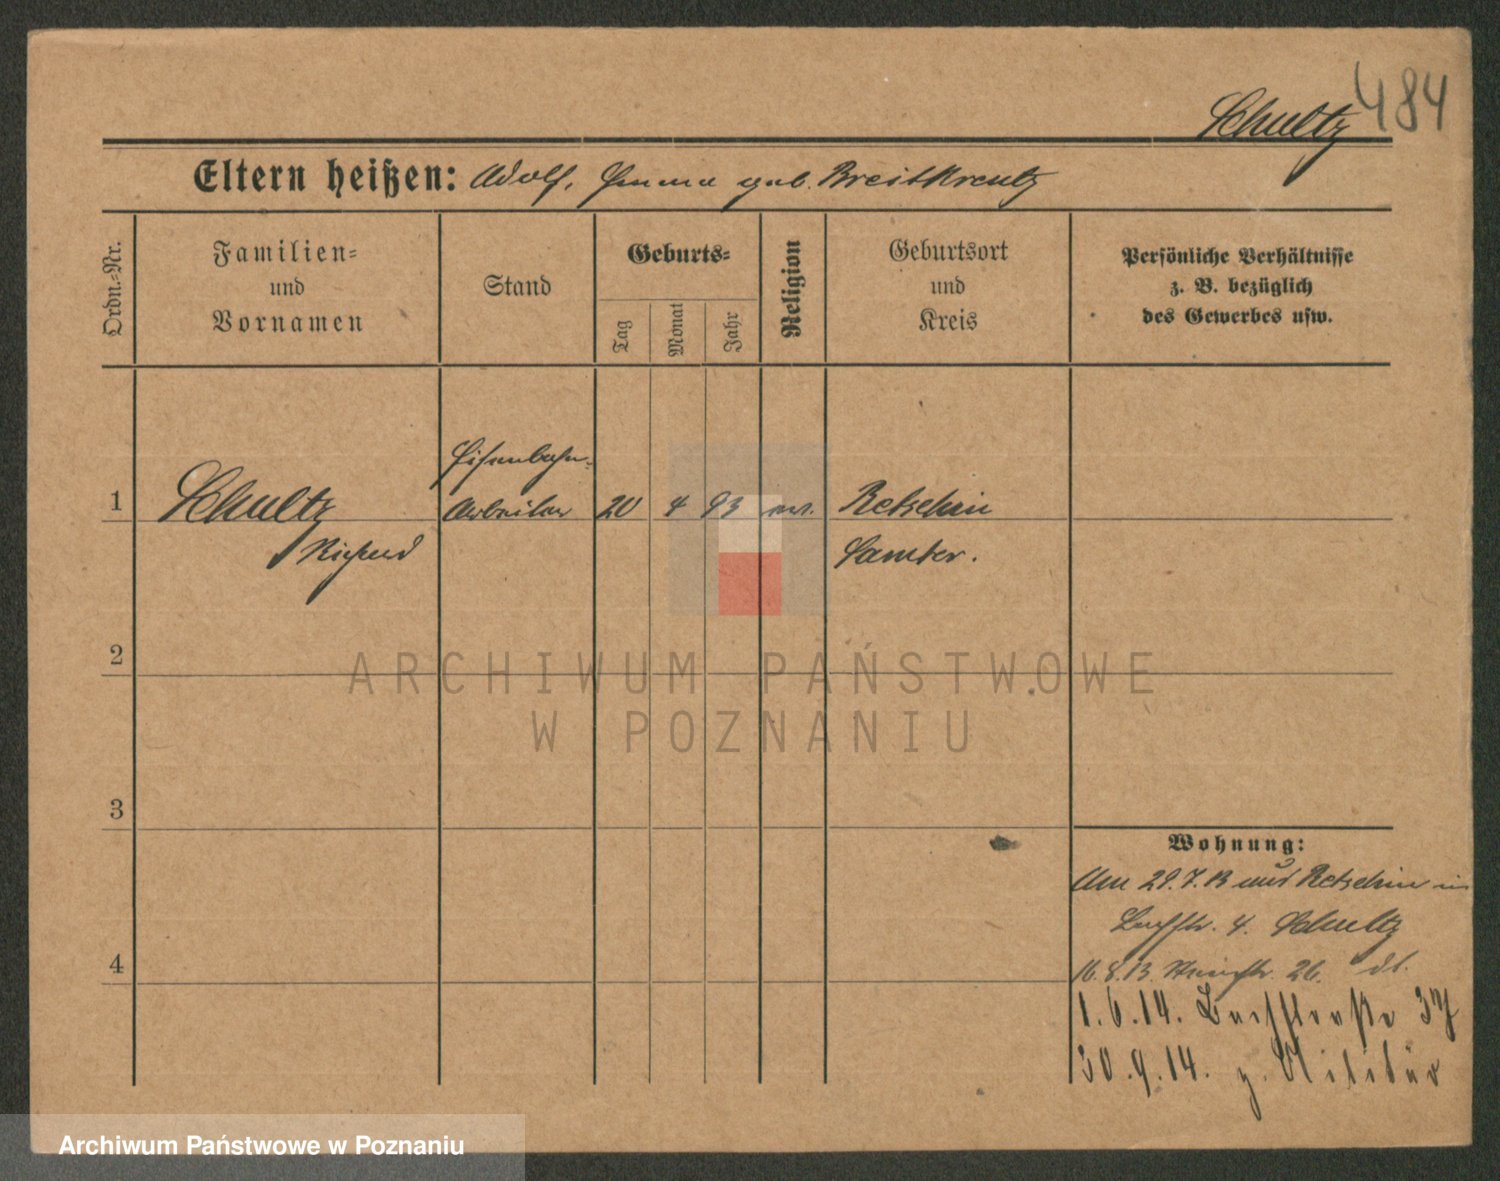 484
Schultz
Eltern heißen: Adolf, Emma geb. Breitkreutz
Ordn.-Nr.
Familien=
und
Vornamen
Stand
Geburts=
Tag
Monat
Jahr
Religion
Geburtsort
und
Kreis
Persönliche Verhältnisse
z. B. bezüglich
des Gewerbes usw.
Eisenbahn-
1 Schultz Arbeiter 20 4 93 ev. Retschin
Richard Samter.
2
ARCHIWUM PAŃSTWOWE
W POZNANIU
3
Wohnung:
Am 29.7.13 aus Retschin in
4. Schultz
4
16.8.13. 26. dt.
1.6.14. Buchstraße 37
30.9.14. z. Militär
Archiwum Państwowe w Poznaniu